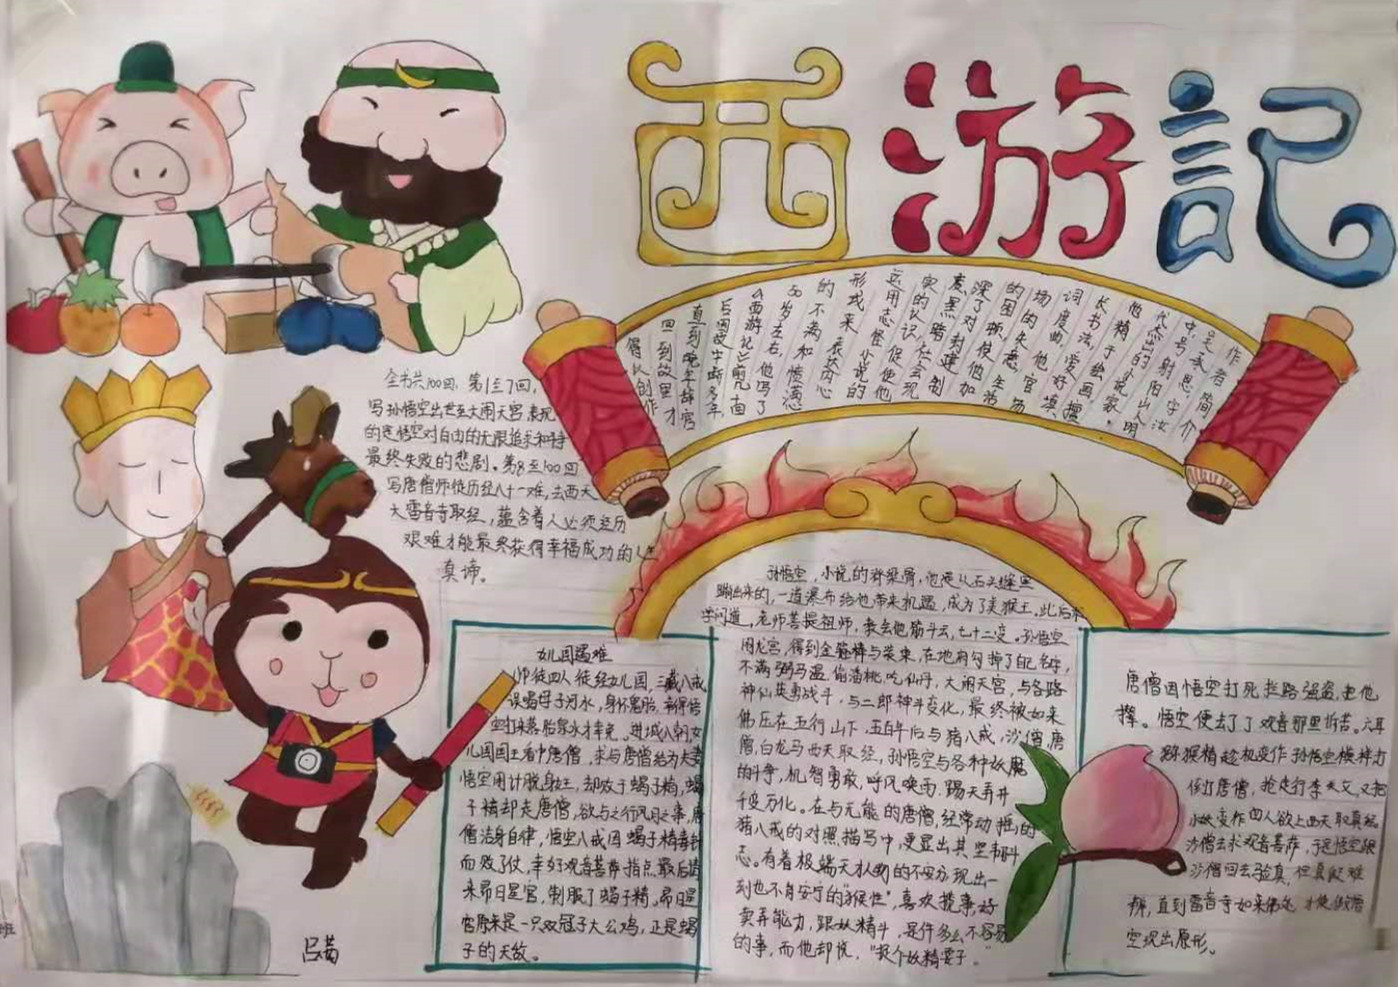 西游記
作者简介
吴承恩,字汝
中,号射阳山人,明
代杰出的小说家。
他精于绘画,擅
长书法,爱好填
词度曲。他官
场的失意,生活
的困顿,使他加
深了对封建制
度黑暗,社会现
实的认识,促使他
运用志怪小说的
形式来表达内心
的不满和愤懑。
50岁左右,他写了
《西游记》前几十回
后因故中断多年,
直到晚年辞官
回到故里,才
得以创作
全书共100回,第1至7回,
写孙悟空出世至大闹天宫,表现
的是悟空对自由的无限追求和
最终失败的悲剧。第8至100回
写唐僧师徒历经八十一难,去西天
大雷音寺取经,蕴含着人必须经历
艰难才能最终获得幸福成功的人生
真谛。
女儿国遇难
师徒四人徒经女儿国,三藏八戒
误喝母子河水,身怀鬼胎,幸得悟
空打来落胎泉水才幸免。进城八朝,女
儿国国王看中唐僧,求与唐僧结为夫妻
悟空用计脱身,却败于蝎子精,蝎
子精却走唐僧,欲与之行风月之事,唐
僧洁身自律,悟空八戒因蝎子精毒针
而败了仗,幸好观音菩萨指点,最后请
来昴日星官,制服了蝎子精。昴日星
官原来是一只双冠子大公鸡,正是蝎
子的天敌。
孙悟空,小说的脊梁骨,他是从石头缝里
蹦出来的,一道瀑布给他带来机遇,成为了美猴王。此后求
学问道,老师菩提祖师,教会他筋斗云,七十二变。孙悟空
闹龙宫,得到金箍棒与装束,在地府勾掉了自己名字,
不满弼马温,偷潘桃,吃仙丹,大闹天宫,与各路
神仙英勇战斗,与二郎神斗变化,最终被如来
佛压在五行山下,五百年后与猪八戒,沙僧,唐
僧,白龙马西天取经,孙悟空与各种妖魔
的斗争,机智勇敢,呼风唤雨,踢天弄井
千变万化。在与无能的唐僧,经常动摇的
猪八戒的对照描写中,更显出其坚韧斗
志。有着极端无私的不安方现出一
刻也不肯安宁的"猴性",喜欢揽事,好
卖弄能力,跟妖精斗,是件多么不容易
的事,而他却说,"捉个妖精耍子。"
唐僧因悟空打死拦路强盗,把他
撵。悟空便去了了观音那里诉苦。六耳
猕猴精趁机变作孙悟空模样打
倒打唐僧,抢走行李关文,又把
小妖变作四人欲上西天取真经
沙僧去求观音菩萨,于是悟空跟
沙僧回去验真,但真假难
辨,直到雷音寺如来佛处,才使假悟
空现出原形。
吕茜
班